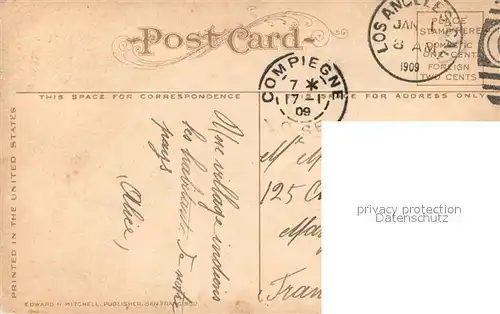 Post Card
PLACE
STAMP HERE
DOMESTIC
ONE CENT
FOREIGN
TWO CENTS
LOS ANGELES
JAN 1
8 AM
1909
COMPIEGNE
7 *
17-1
09
OISE
THIS SPACE FOR CORRESPONDENCE
SPACE FOR ADDRESS ONLY
PRINTED IN THE UNITED STATES
Une village indiens
les habitants de notre
pays
Alice,
M
125
Fran
privacy protection
Datenschutz
EDWARD H. MITCHELL, PUBLISHER, SAN FRANCISCO